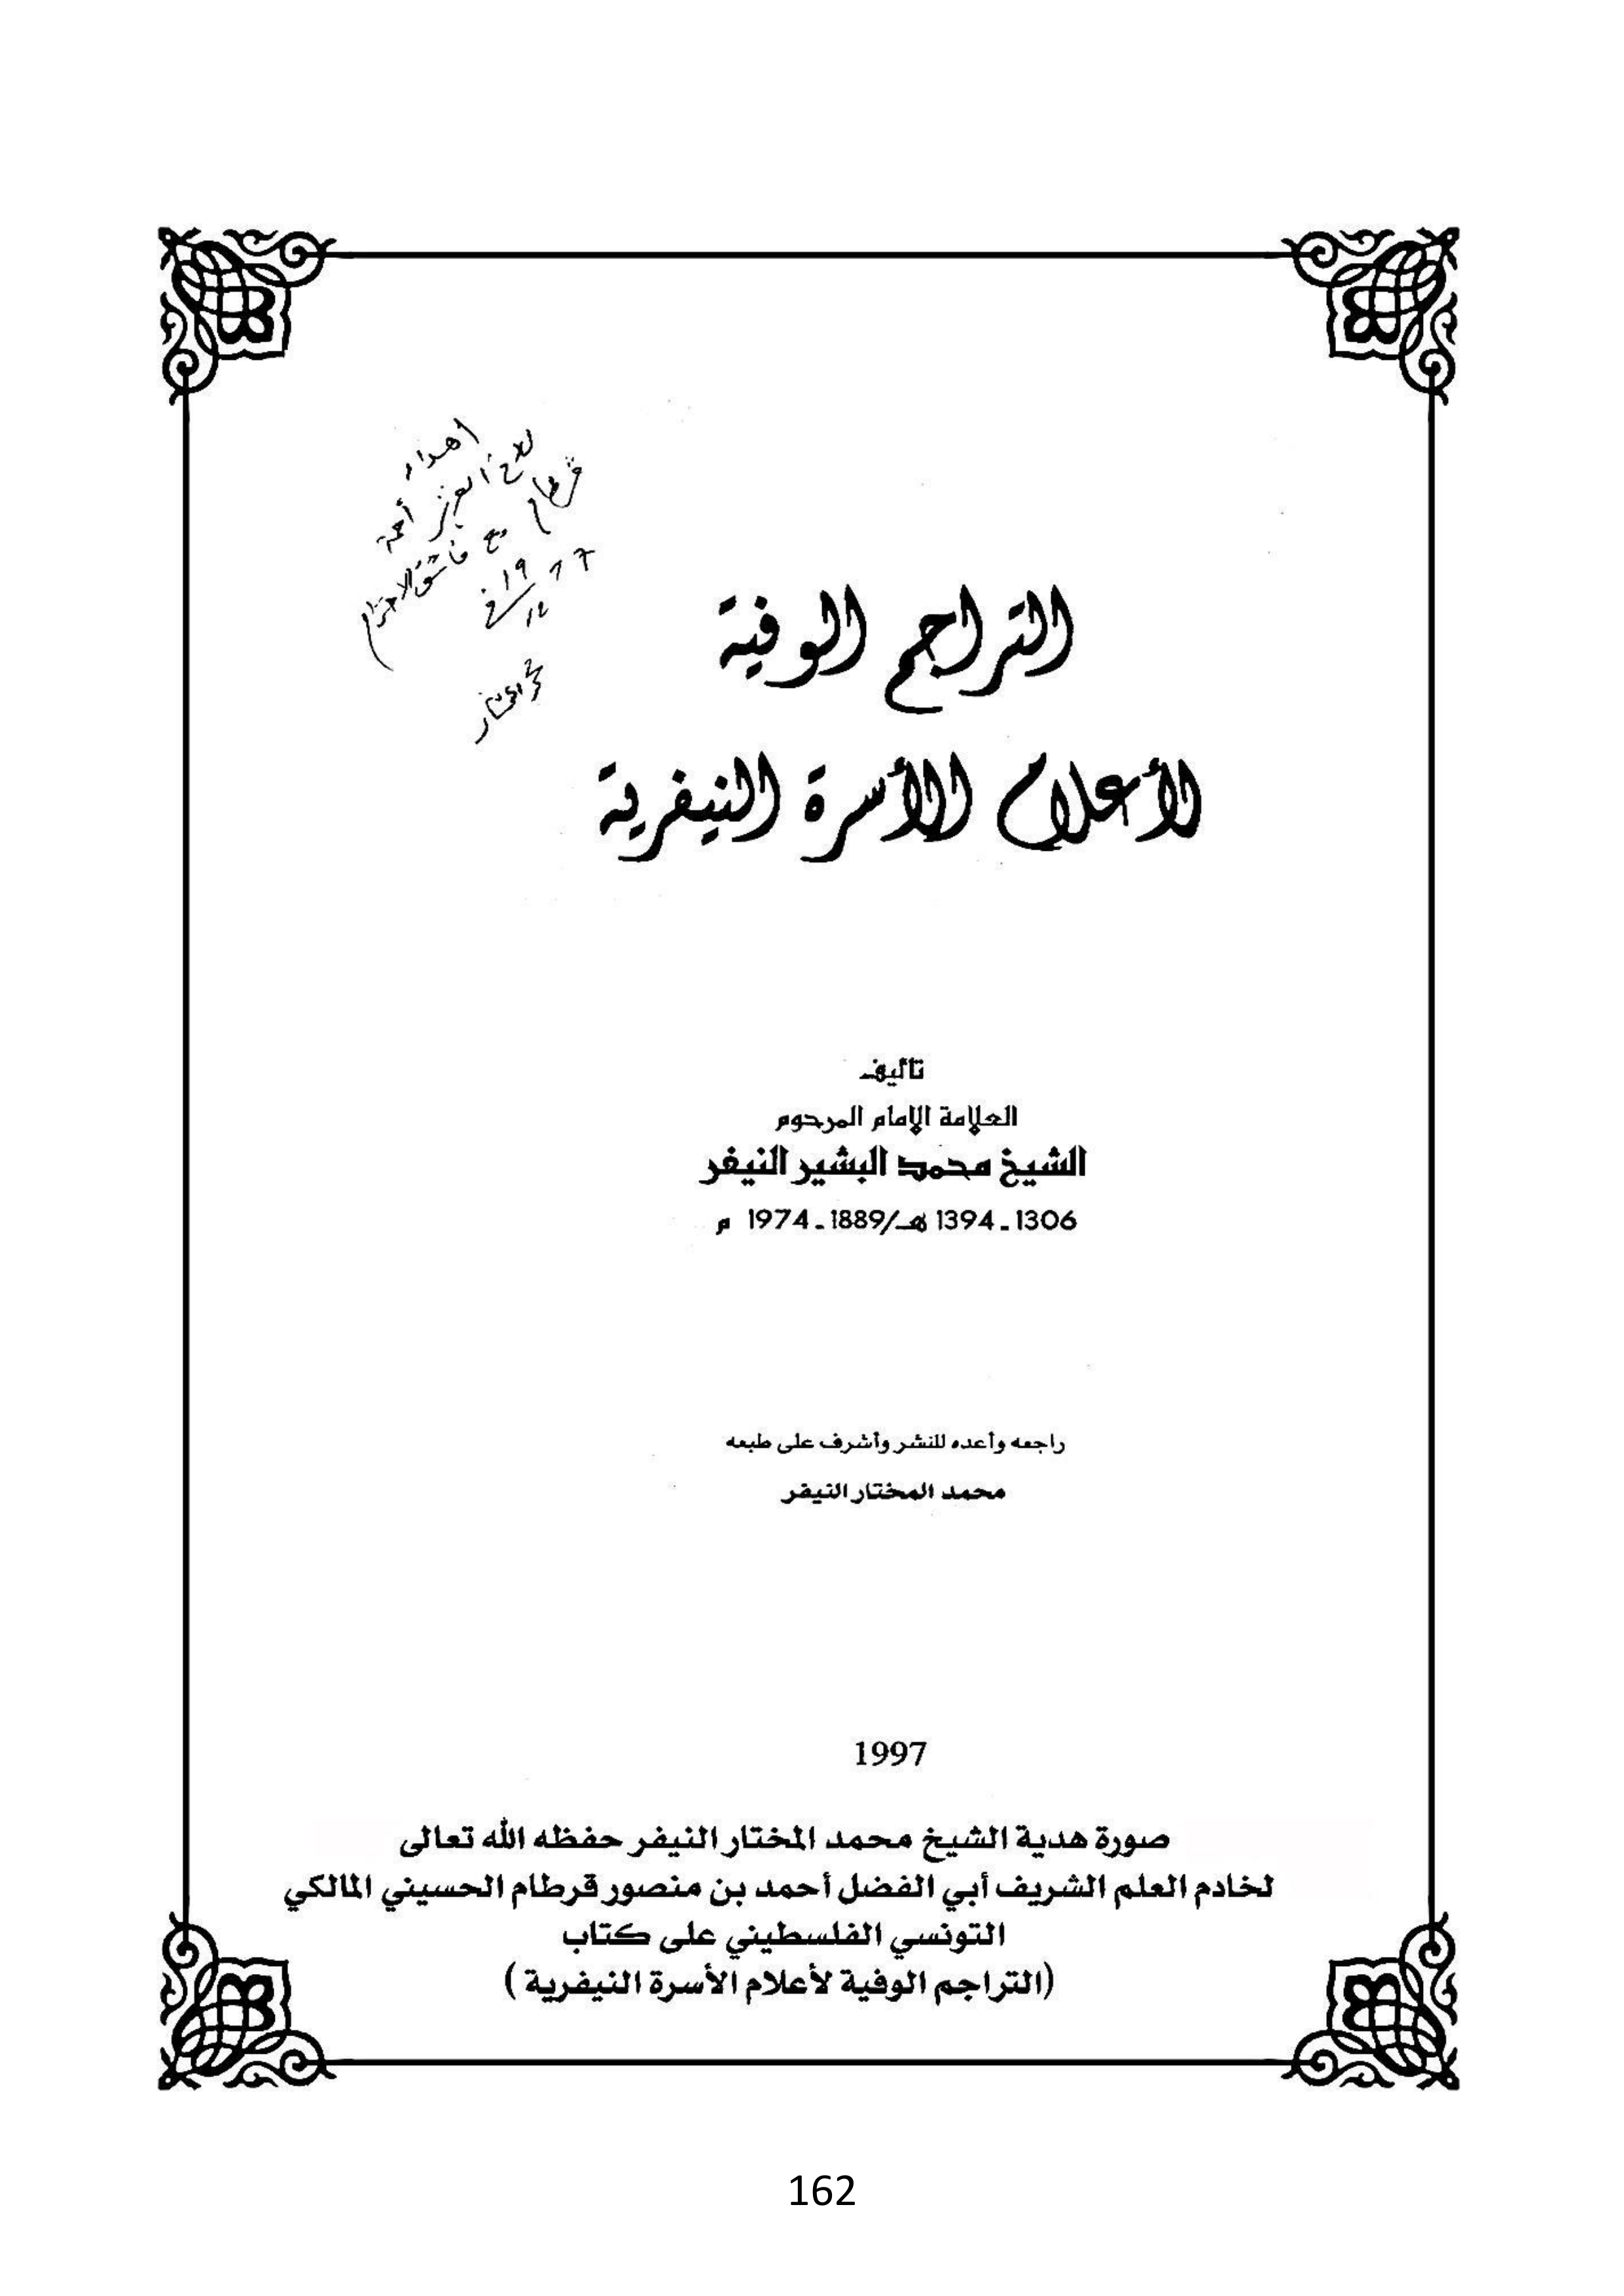 اهداء
للاخ العزيز أحمد
قرطام مع فائق الاحترام
التراجم الوفية
لأعلام الأسرة النيفرية
تأليف
العلامة الإمام المرحوم
الشيخ محمد البشير النيفر
1306 - 1394 هـ/1889 - 1974 م
راجعه وأعده للنشر وأشرف على طبعه
محمد المختار النيفر
1997
صورة هدية الشيخ محمد المختار النيفر حفظه الله تعالى
لخادم العلم الشريف أبي الفضل أحمد بن منصور قرطام الحسيني المالكي
التونسي الفلسطيني على كتاب
(التراجم الوفية لأعلام الأسرة النيفرية)
162